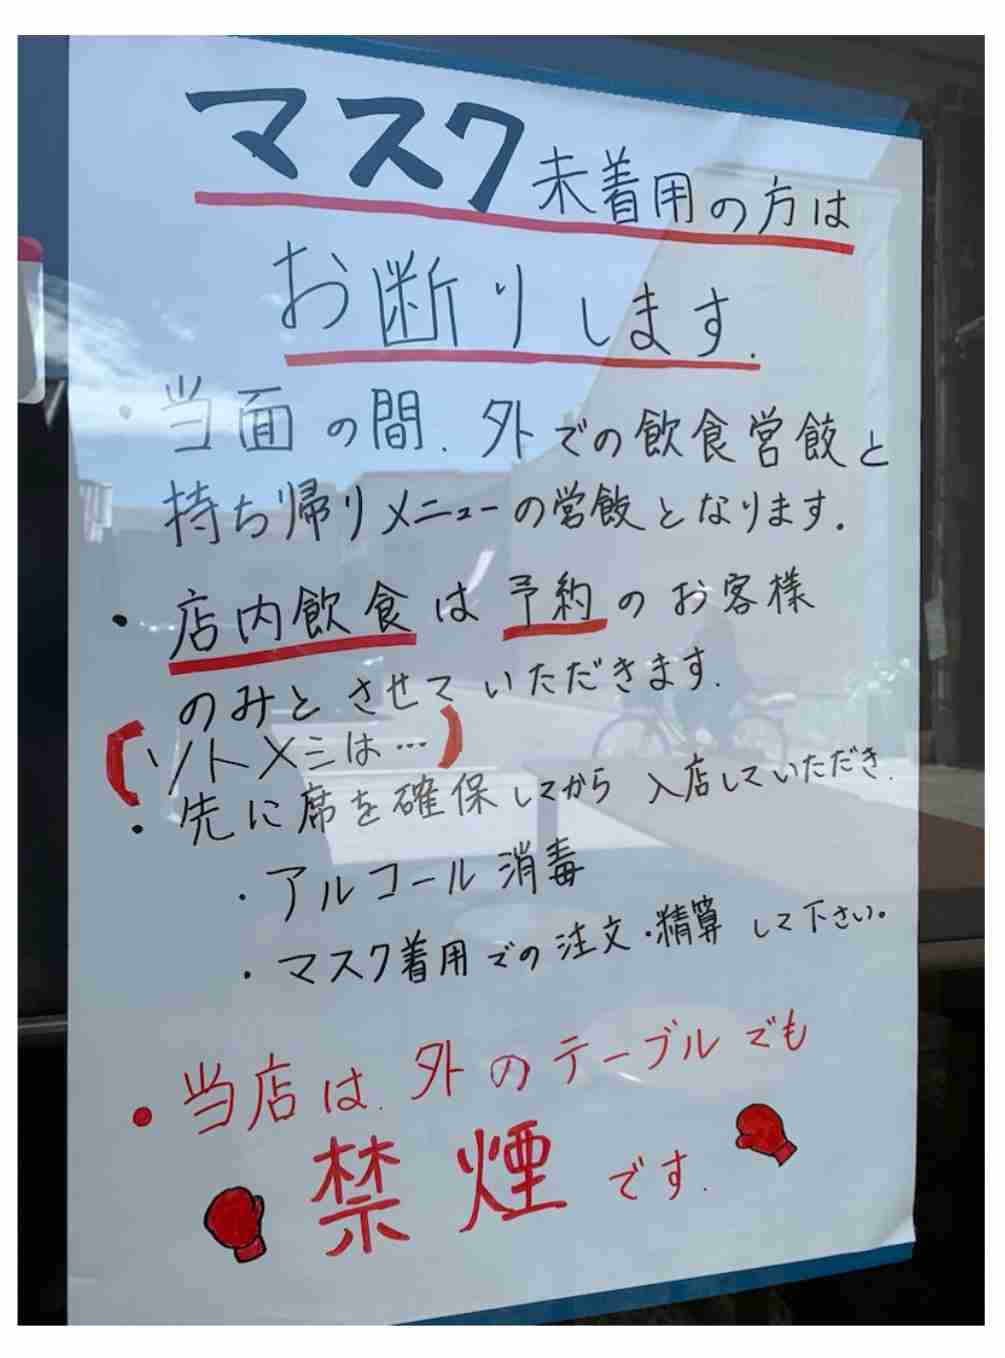 マスク未着用の方は
お断りします.
・当面の間.外での飲食営餃と
持ち帰りメニューの営飯となります.
・店内飲食は予約のお客様
のみとさせていただきます.
(ソトメシは…)
・先に席を確保してから 入店していただき.
・アルコール消毒
・マスク着用での注文・精算 して下さい。
・当店は.外のテーブルでも
禁煙です.